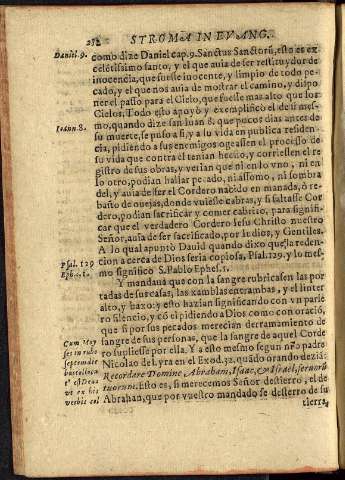 212 STROMA IN EVANG.
Daniel. 9. como dize Daniel cap. 9. Sanctus Sanctorũ, esto es ex
celẽtissimo santo, y el que auia de ser restituydor de
inocencia, que fuesse inocente, y limpio de todo pe-
cado, y el que nos auia de mostrar el camino, y dispo
ner el passo para el Cielo, que fuesse mas alto que los
Cielos. Todo esto apoyò y exemplificò el de si mes-
Ioann. 8. mo, quando dize san Iuan 8. que pocos dias antes de
su muerte, se puso a si, y a su vida en publica residen
cia, pidiendo a sus enemigos ogeassen el processo de
su vida que contra el tenian hecho, y corriessen el re
gistro de sus obras, y verian que ni en lo vno, ni en
lo otro, podian hallar pecado, ni assomo, ni sombra
del, y auia de ser el Cordero nacido en manada, ò re-
baño de ouejas, donde vuiesse cabras, y si faltasse Cor
dero, podian sacrificar y comer cabrito, para signifi-
car que el verdadero Cordero Iesu Christo nuestro
Señor, auia de ser sacrificado, por Iudios, y Gentiles.
A lo qual apuntò Dauid quando dixo que la reden-
Psal. 129 cion a cerca de Dios seria copiosa, Psal. 129. y lo mes-
Ephes. 1. mo significò S. Pablo Ephes. 1.
Y mandaua que con la sangre rubricasen las por
tadas de sus casas, las xambras entrambas, y el linter
alto, y baxo: y esto hazian significando con vn parle
ro silencio, y cò el pidiendo a Dios como con oraciò,
que si por sus pecados merecian derramamiento de
Cum Moy sangre de sus personas, que la sangre de aquel Corde
ses in rubo ro supliesse por ella. Y a esto mesmo segun nr̃o padre
Nicolao de Lyra en el Exod. 32. quãdo orando dezià:
Recordare Domine, Abraham, Isaac, & Israel, seruorũ
tuorum. Esto es, si merecemos Señor destierro, el de
verbis col Abrahan, que por vuestro mandado se desterro de su
tierra,